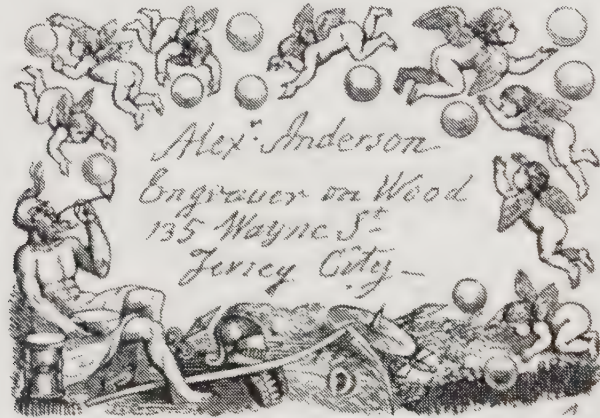 Alexr. Anderson
Engraver on Wood
135 Wayne St.
Jersey City